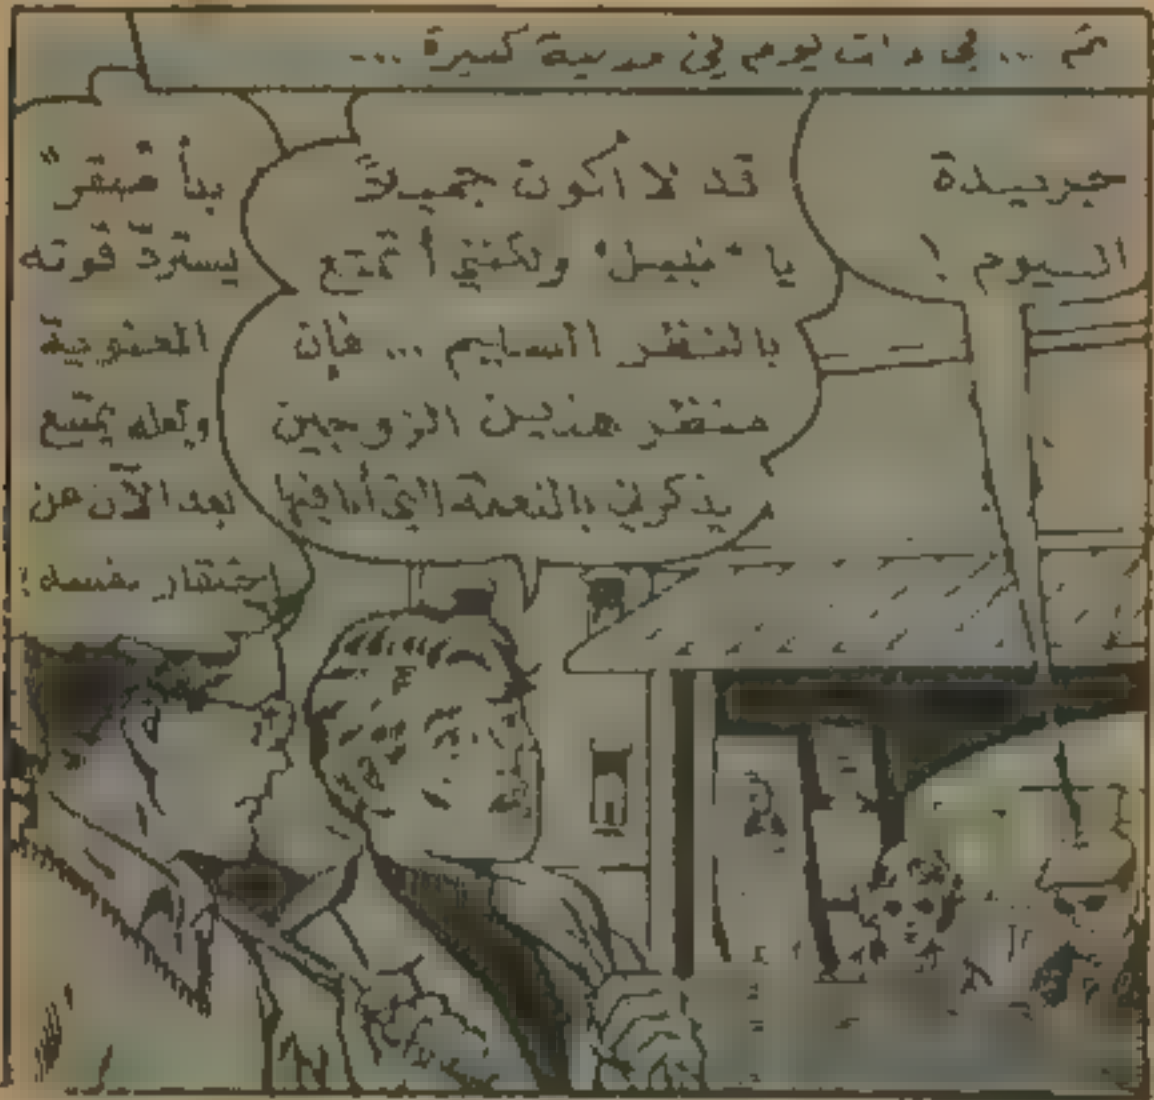 ثم ... في ذات يوم في مدينة كبيرة ...
جريدة
اليوم !
قد لا أكون جميلاً
يا "نبيل" ولكنني أتمتع
بالنظر السليم ... فإن
منظر هذين الزوجين
يذكرني بالنعمة التي أنا فيها
بدأ "صقر"
يسترد قوته
المعنوية
ولعله يمتنع
بعد الآن عن
احتقار نفسه !